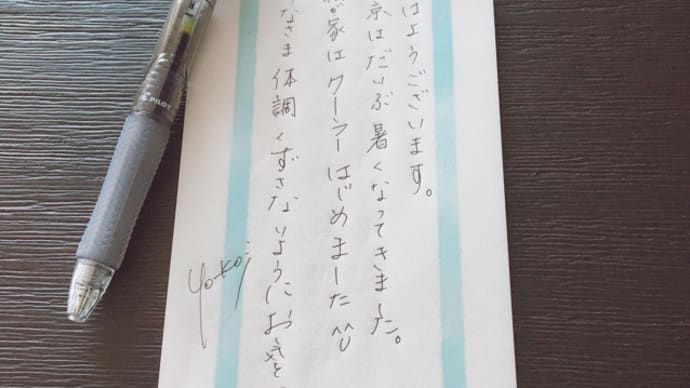 はようございます。
京はだいぶ暑くなってきました。
が家はクーラーはじめました^^
なさま体調くずさないようにお気を
Yoko
PILOT